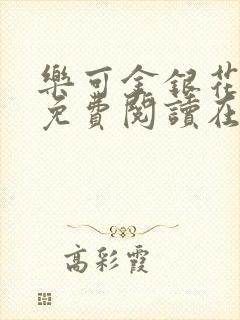 樂可金銀花
免費閱讀在
高彩霞